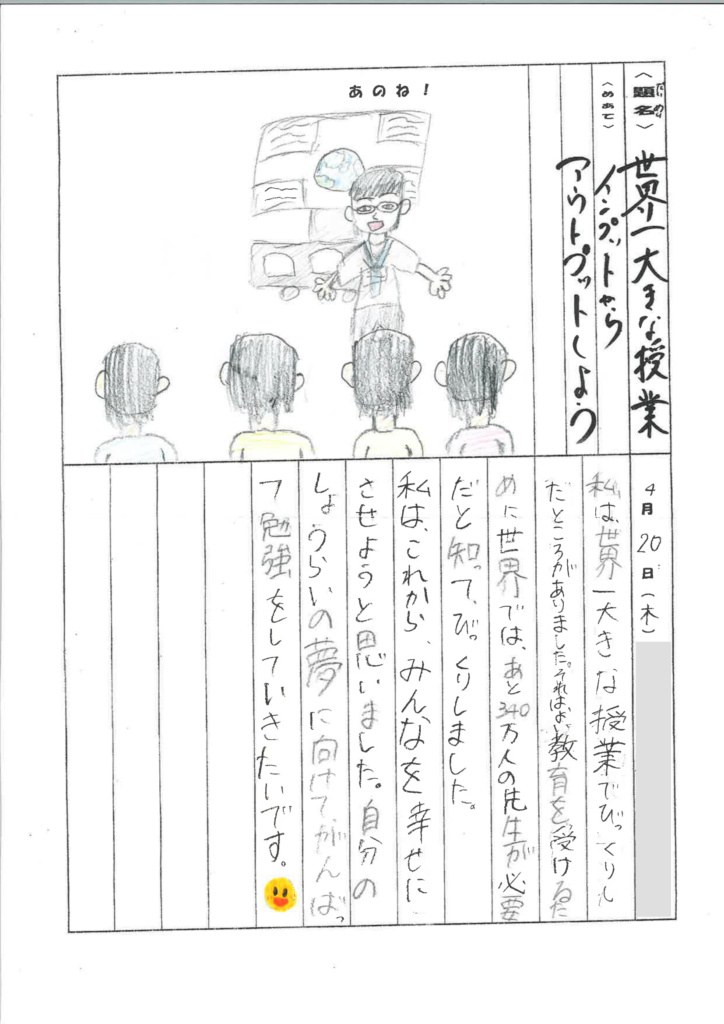 あのね！
〈題名〉だいめい
世界一大きな授業
〈めあて〉
インプットから
アウトプットしよう
4月20日（木）
私は、世界一大きな授業でびっくりし
だところがありました。それはよい教育を受けるた
めに世界では、あと340万人の先生が必要
だと知って、びっくりしました。
私は、これから、みんなを幸せに
させようと思いました。自分の
しょうらいの夢に向けて、がんばっ
て勉強をしていきたいです。